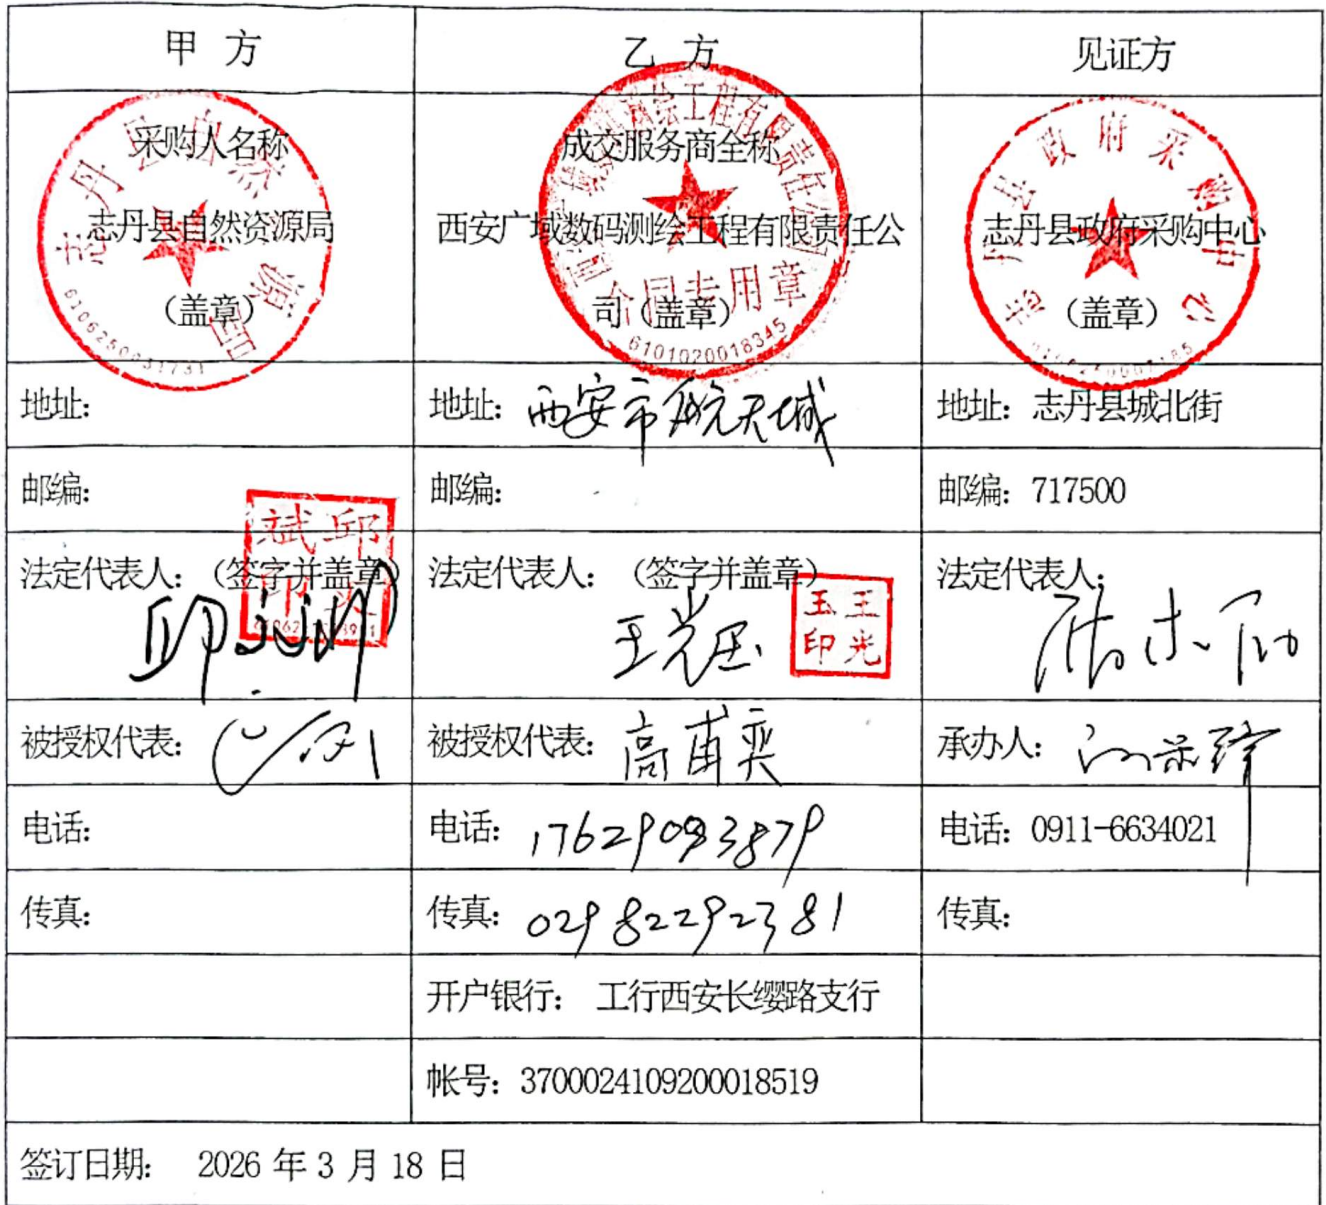 甲 方
乙 方
见证方
采购人名称
志丹县自然资源局
（盖章）
成交服务商全称
西安广域数码测绘工程有限责任公
司（盖章）
志丹县政府采购中心
（盖章）
志丹县自然资源局
6106250031731
测绘工程有限责任公司
合同专用章
6101020018345
志丹县政府采购中心
地址：
地址：西安市航天城
地址：志丹县城北街
邮编：
邮编：
邮编：717500
法定代表人：（签字并盖章）
邱斌
斌邱
印
法定代表人：（签字并盖章）
王光玉
玉王
印光
法定代表人：
被授权代表：
被授权代表：高甫奕
承办人：
电话：
电话：17629093879
电话：0911-6634021
传真：
传真：029 82292381
传真：
开户银行： 工行西安长缨路支行
帐号：3700024109200018519
签订日期： 2026 年 3 月 18 日